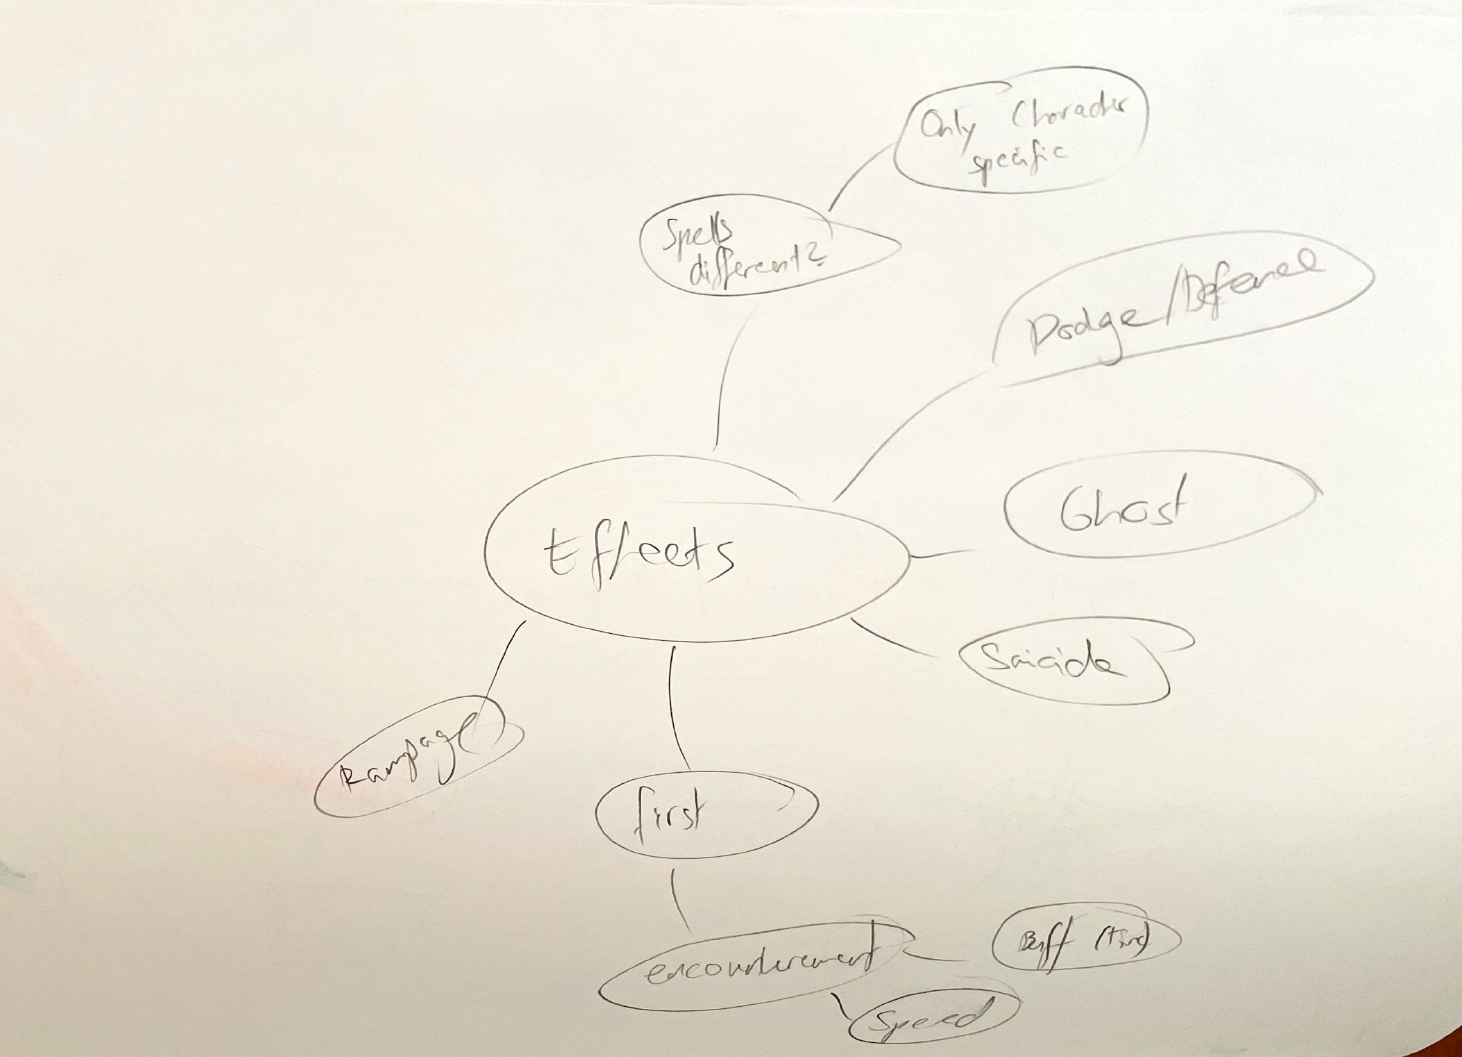 Only Character
specific
Spells
different?
Dodge/Defence
Ghost
Effects
Suicide
Rampage
first
encounterement
Buff
Speed